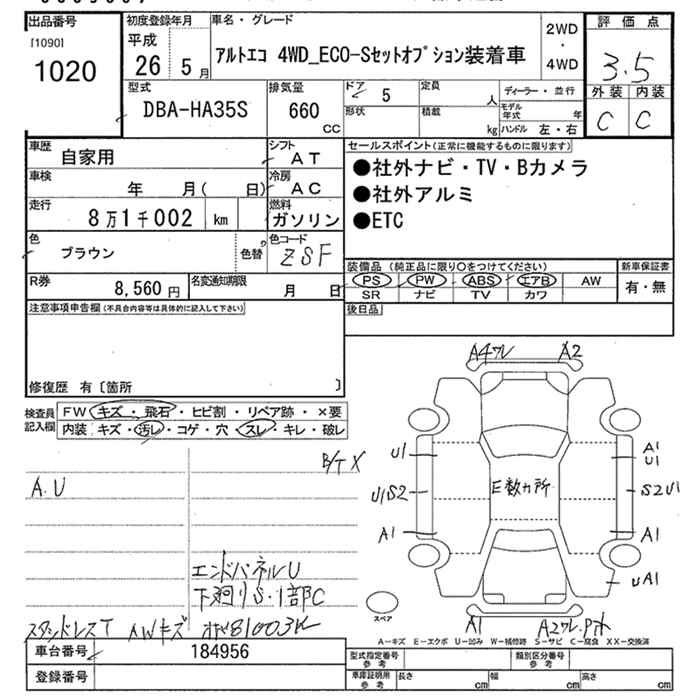 出品番号
[1090]
1020
初度登録年月
平成
26 5月
車名・グレード
アルトエコ 4WD_ECO-Sセットオプション装着車
2WD
・
4WD
評価点
3.5
外装 内装
C C
型式
DBA-HA35S
排気量
660
cc
ドア 5
形状
定員 人
積載 kg
ディーラー・並行
モデル年式 年
ハンドル 左・右
車歴
自家用
シフト
AT
車検
年 月( 日)
冷房
AC
走行
8万1千002 km
燃料
ガソリン
色
ブラウン
色替
色コード
ZSF
R券
8,560円
名変通知期限
月 日
セールスポイント(正常に機能するものに限ります)
●社外ナビ・TV・Bカメラ
●社外アルミ
●ETC
装備品 (純正品に限り○をつけてください)
PS PW ABS エアB AW
SR ナビ TV カワ
新車保証書
有・無
後日品
注意事項申告欄(不具合内容等は具体的に記入して下さい)
修復歴 有〔箇所 〕
検査員
記入欄
FW キズ・飛石・ヒビ割・リペア跡・×要
内装 キズ・汚レ・コケ・穴・スレ・キレ・破レ
B/T X
A.U
エンドパネルU
下廻りS.1部C
スタッドレスT AWキズ
81003K
A4ワレ A2
U1
A1
U1
U1S2
E数カ所
S2U1
A1
A1
UA1
A1
A2ワレ.Pホ
スペア
A-キズ E-エクボ U-凹み W-補修跡 S-サビ C-腐食 XX-交換済
車台番号
184956
登録番号
型式指定番号
参考
類別区分番号
参考
車庫証明用
参考
長さ cm
幅 cm
高さ cm